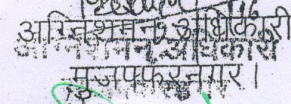 अग्निशमन अधिकारी
अग्निशमन अधिकारी
मुजफ्फरनगर।